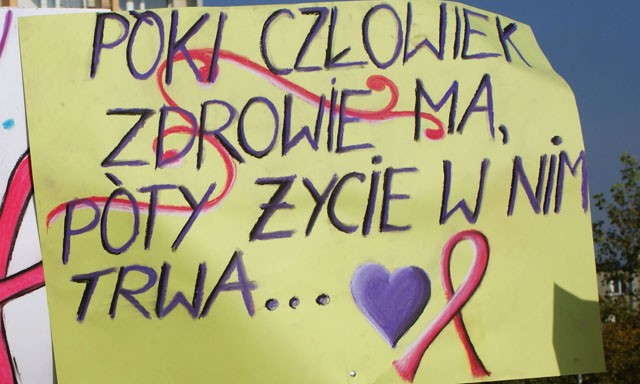 POKI CZŁOWIEK
ZDROWIE MA,
PÒTY ŻYCIE W NIM
TRWA...